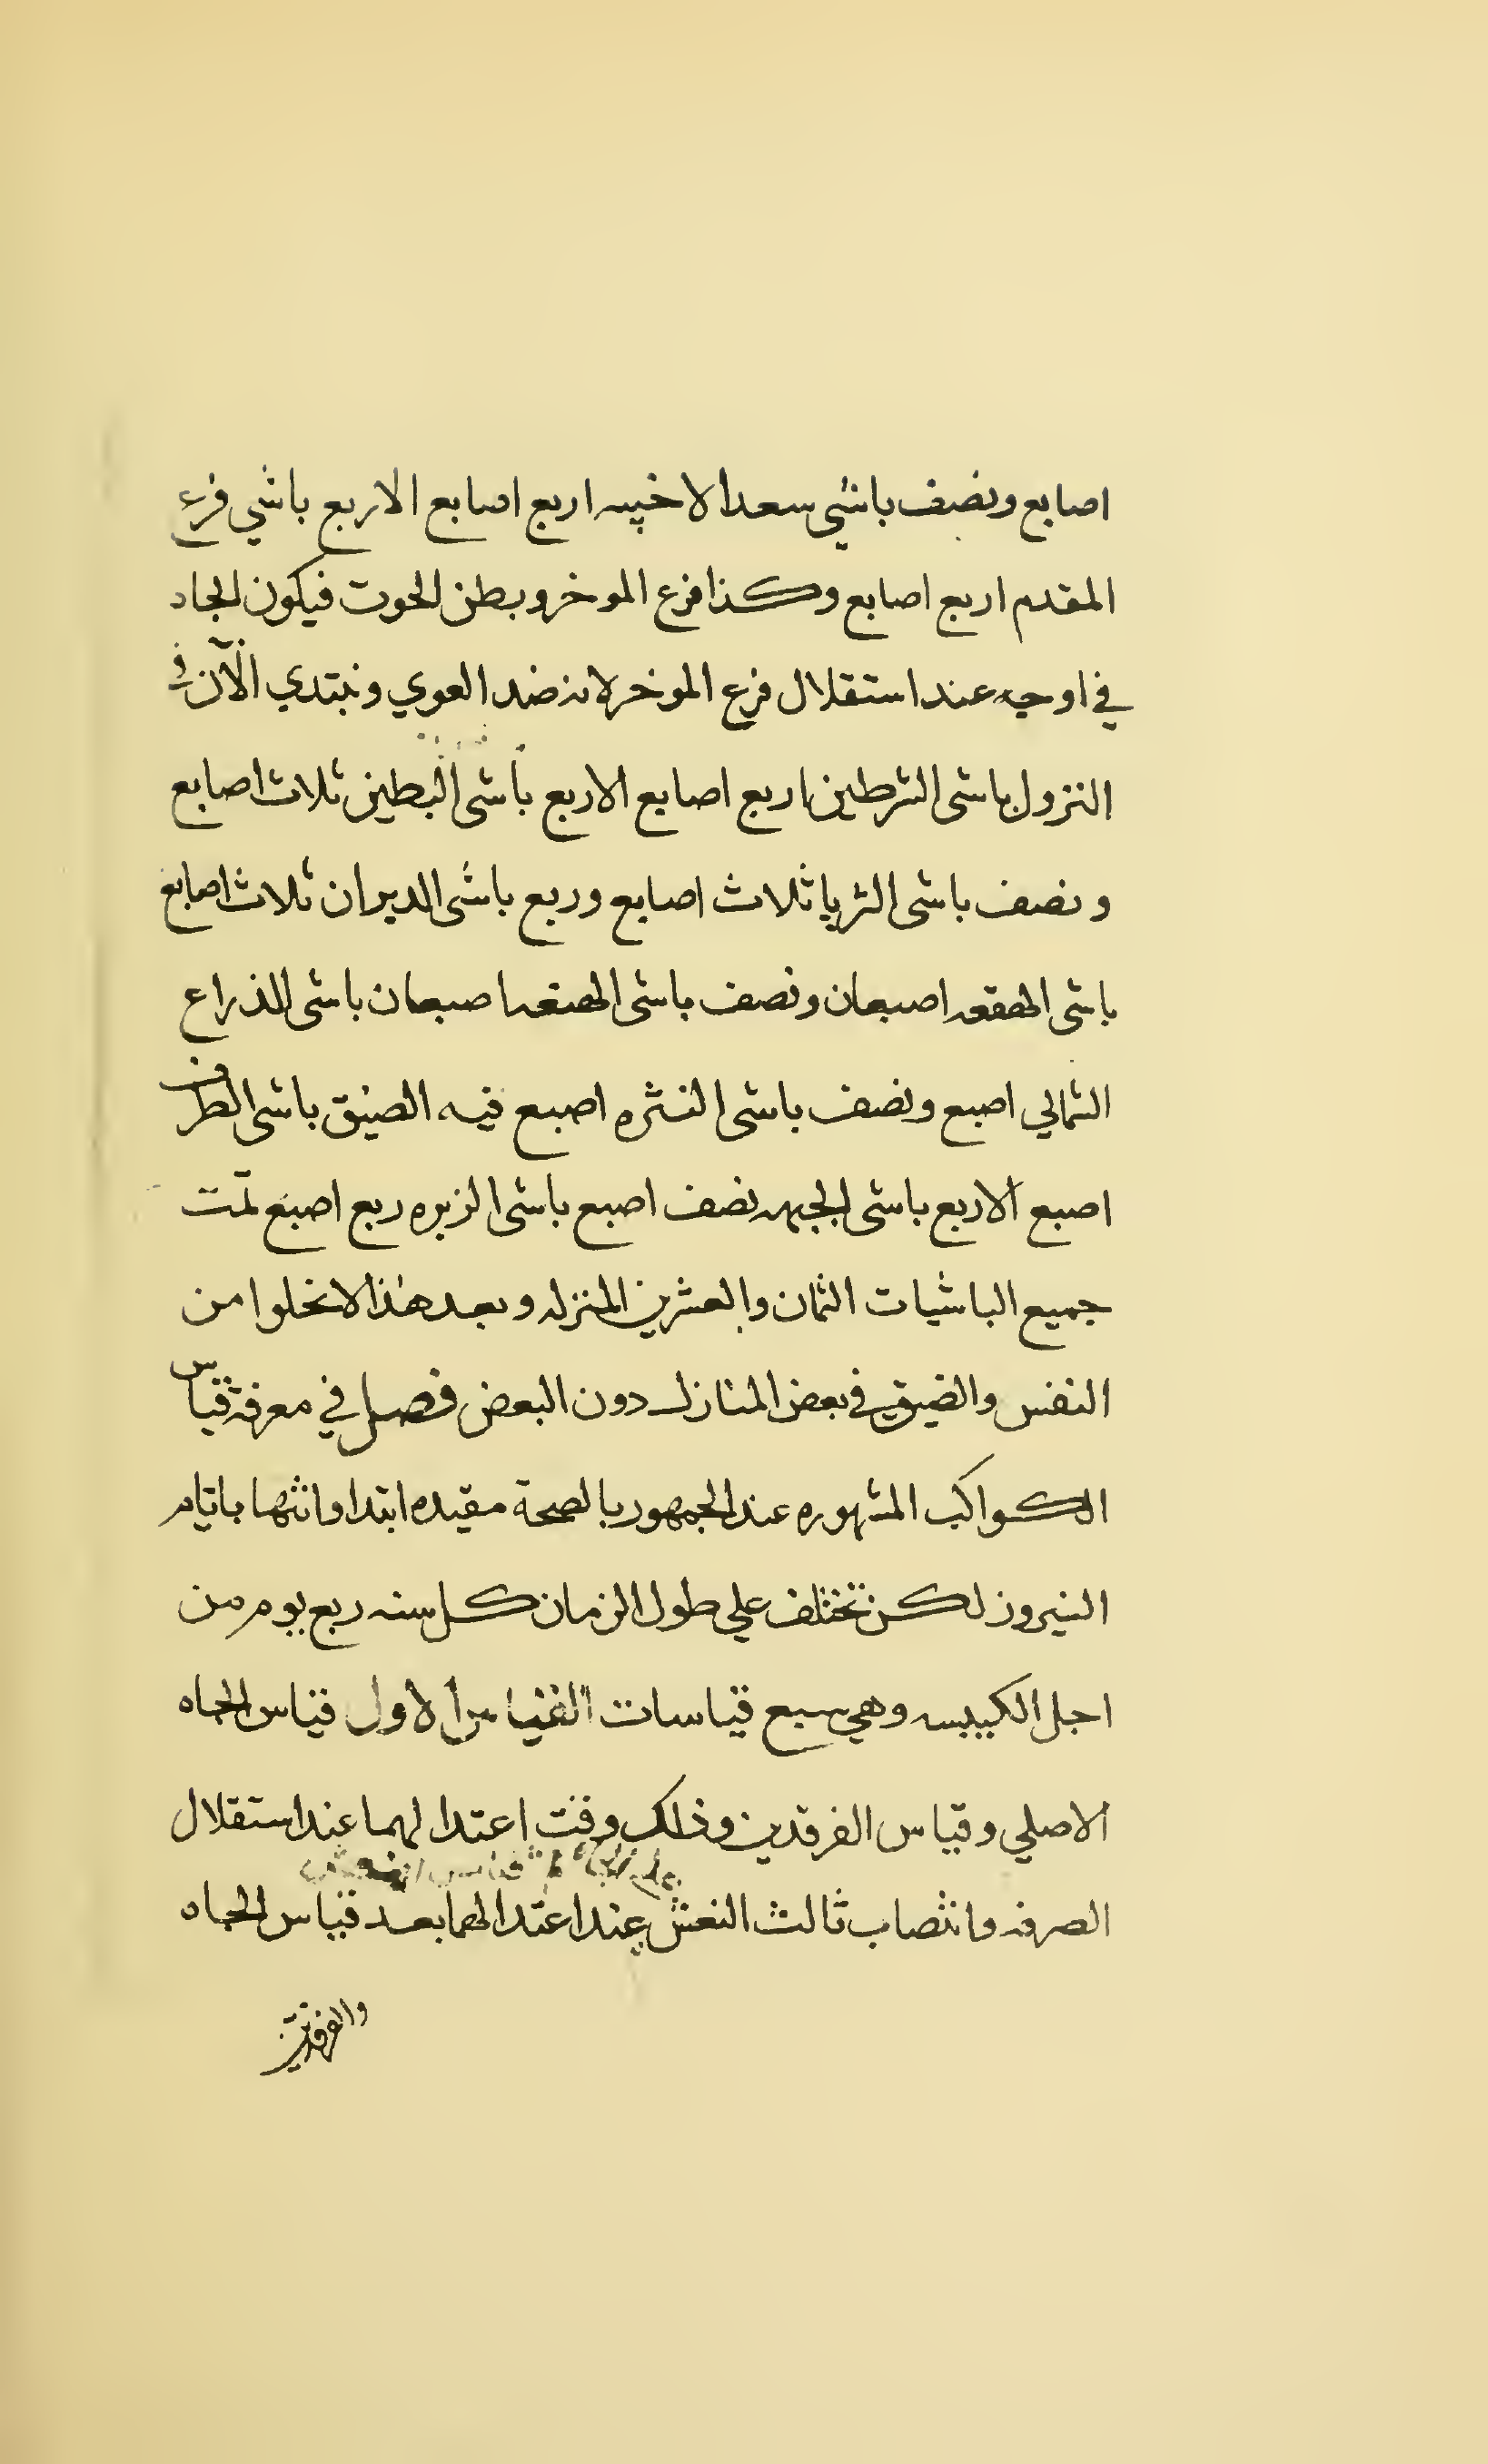 اصابع ونصف باشي سعد الاخبيه اربع اصابع الاربع باشي فرع
المقدم اربع اصابع وكذا فرع الموخر وبطن الحوت فيكون الجاه
في اوجه عند استقلال فرع الموخر لانه ضد العوي ونبتدي الآن في
النزول باشى الشرطين اربع اصابع الاربع باشى البطين ثلاث اصابع
ونصف باشى الثريا ثلاث اصابع وربع باشى الدبران ثلاث اصابع
باشى الهقعه اصبعان ونصف باشى الهنعه اصبعان باشى الذراع
الشمالي اصبع ونصف باشى النثره اصبع فيه الضيق باشى الطرف
اصبع الاربع باشى الجبهه نصف اصبع باشى الزبره ربع اصبع تمت
جميع الباشيات الثمان والعشرين المنزله وبعد هذا لا تخلوا من
النفس والضيق في بعض المنازل دون البعض فصل في معرفة قياس
الكواكب المشهوره عند الجمهور بالصحة مقيده ابتدا وانتها بايام
النيروز لكن تختلف علي طول الزمان كل سنه ربع يوم من
اجل الكبيسه وهي سبع قياسات القياس الاول قياس الجاه
الاصلي وقياس الفرقدين وذلك وقت اعتدالهما عند استقلال
الصرفه وانتصاب ثالث النعش عند اعتدالهما بعد قياس الجاه
والفرقدين